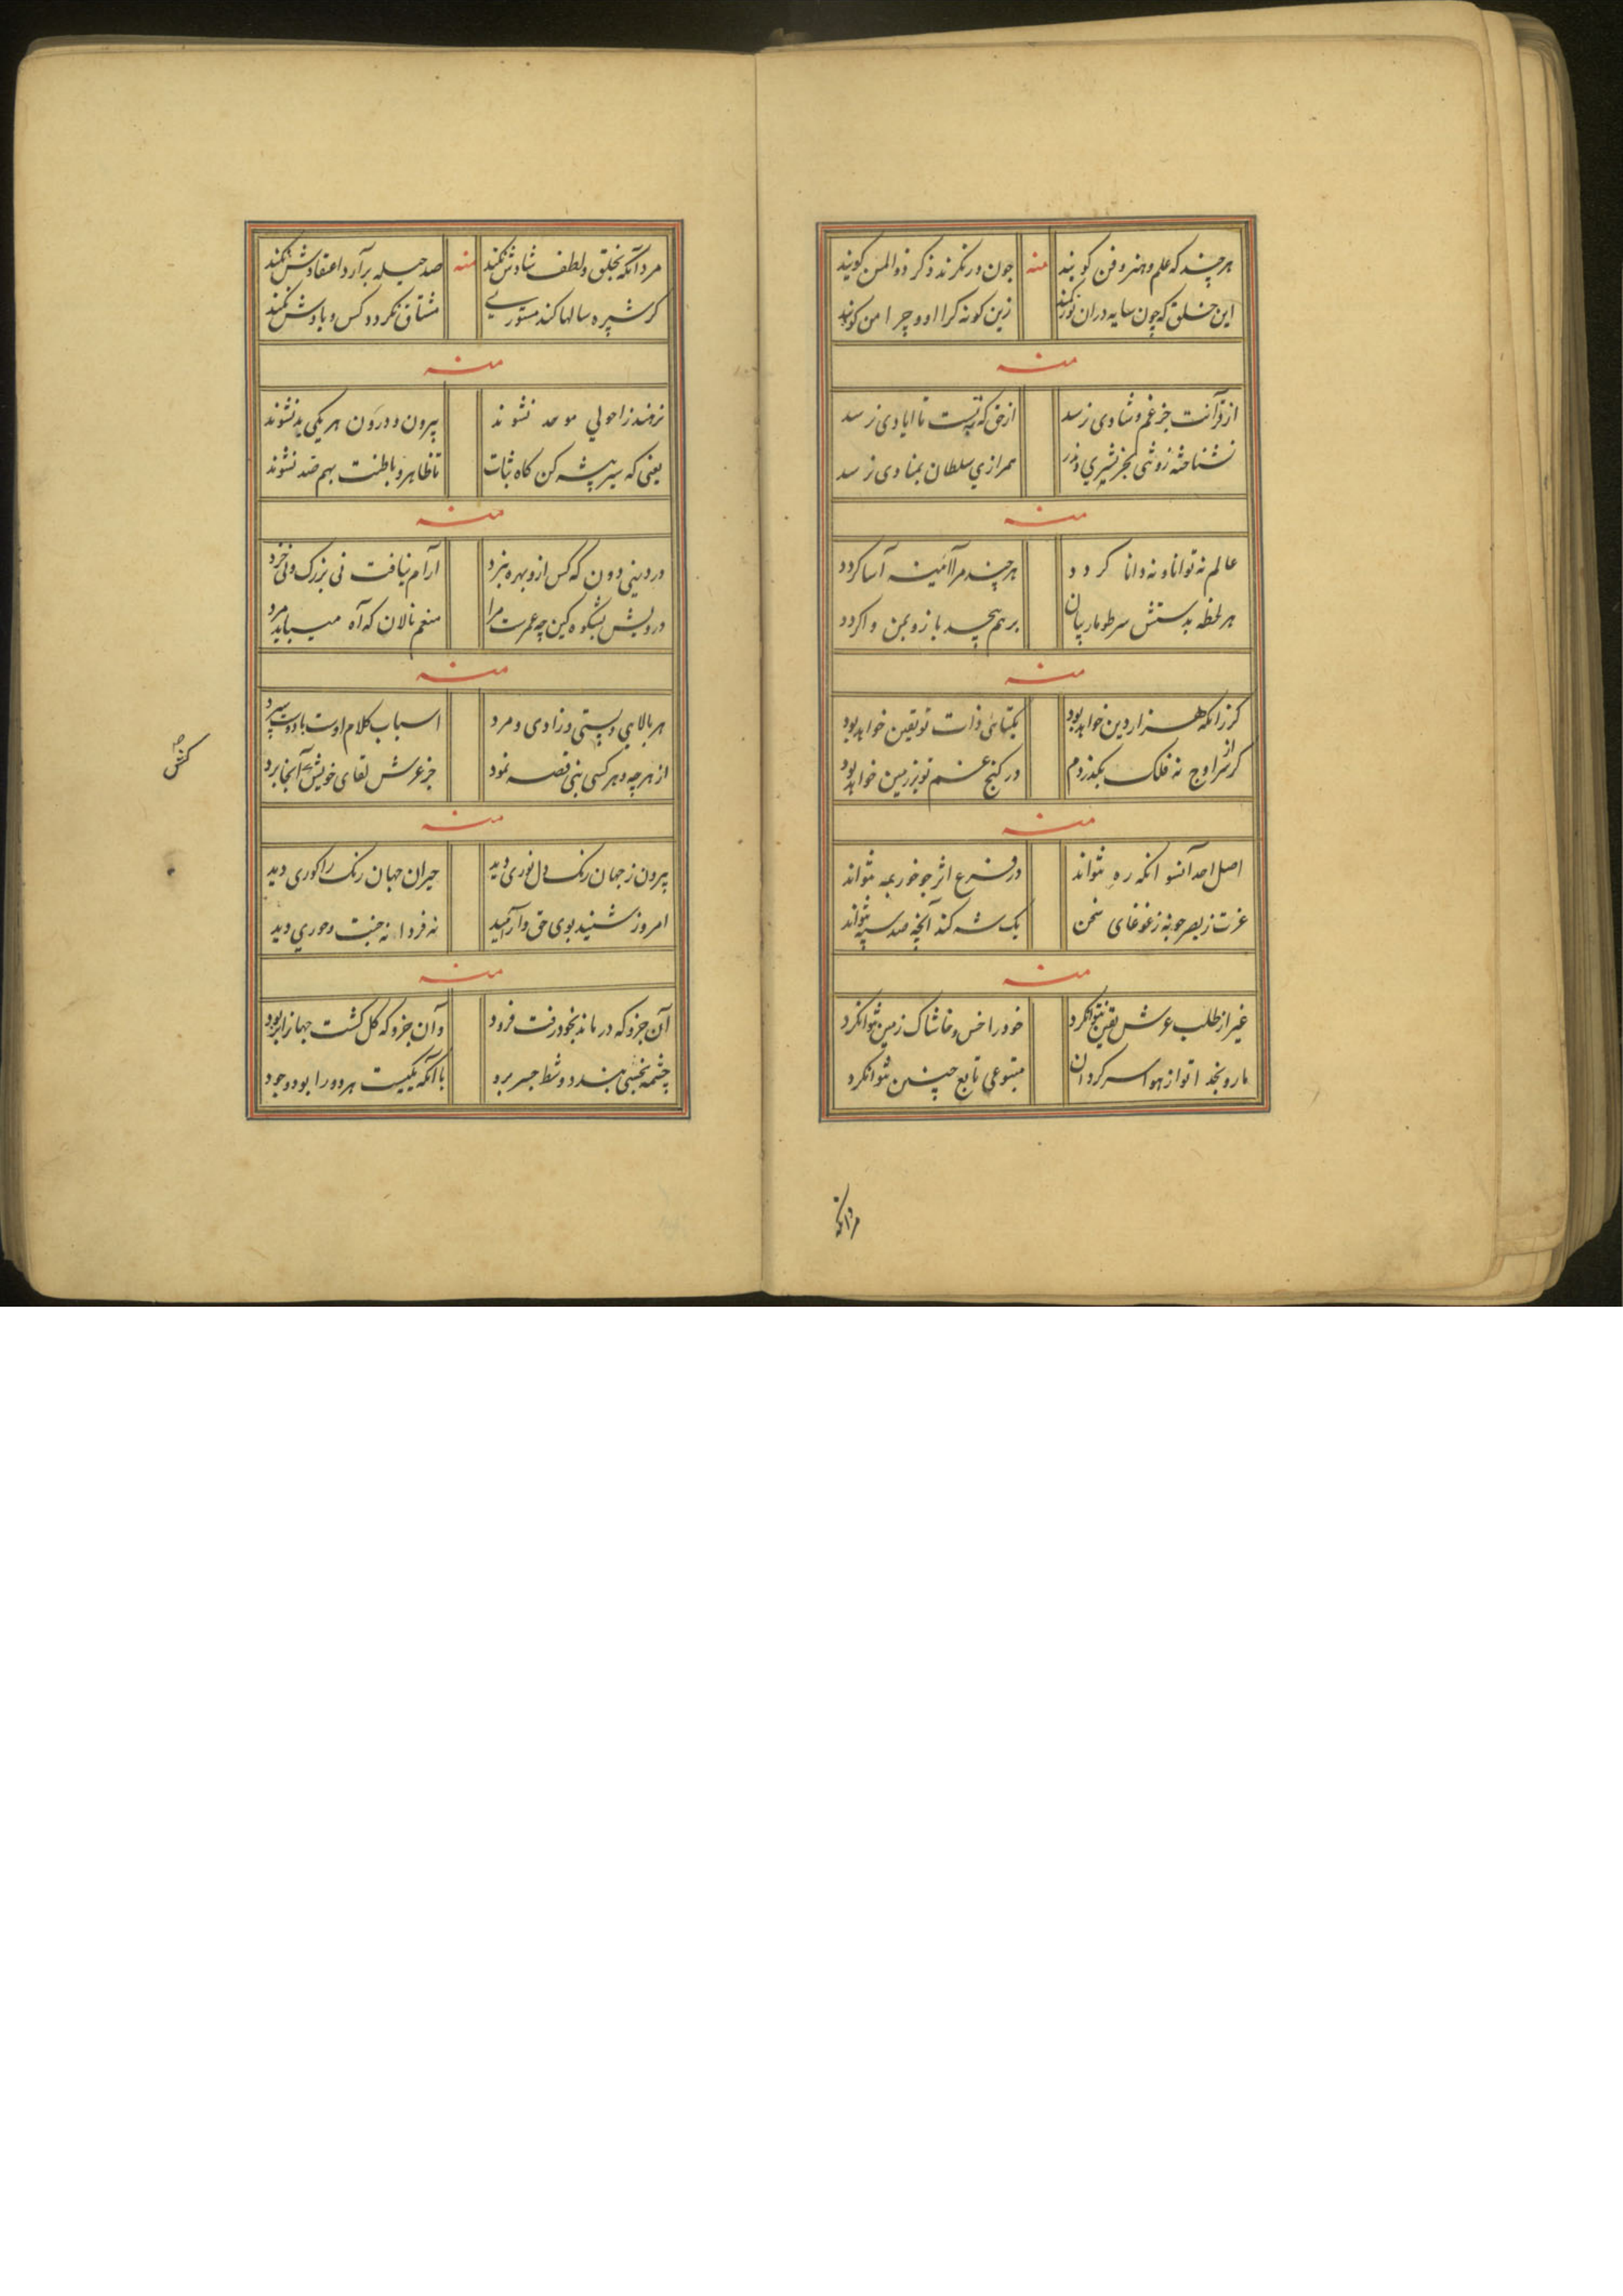 هرچند که علم و هنر و فن کویند
منه
چون درنکرند ذکر ذوالمن کویند
این خلق که چون سایه دران
زین کونه کرا او و چرا من کویند
منه
از قرآنت جز غم و شادی نرسد
از حق که تا ایادی نرسد
نشناخته
همرازی سلطان بمنادی نرسد
منه
عالم نه توانا و نه دانا کردد
هرچند مرا آئینه آسا کردد
هر لحظه بدستش سر طومار بیان
برهم پیچد باز و بمن وا کردد
منه
کر زانکه هزار دین خواهد بود
یکتائی ذات تو یقین خواهد بود
کر از سر اوج نه فلک بکذردم
در کنج غم تو بر زمین خواهد بود
منه
اصل احد آنسو انکه ره نتواند
در فرع اثر چو خور بمه نتواند
عزت ز بصر جو نه ز غوغای سخن
یک شه کند آنچه صد سپه نتواند
منه
غیر از طلب عرش یقین نتوانکرد
خود را خس و خاشاک زمین نتوانکرد
ما رو بخدا تو از هوا سرکردان
متبوعی تابع چنین نتوانکرد
مردآنکه
مرد آنکه بخلق و لطف شادش نکنند
منه
صد حیله برآرد اعتقادش نکنند
کر شپره سالها کند مستوری
مشتاق نکردد کس و یادش نکنند
منه
نرمند ز احولی موحد نشوند
بیرون و درون هر یکی بد نشوند
یعنی که سیر پیشه کن کاه ثبات
تا ظاهر و باطنت بهم ضد نشوند
منه
در دینی دون که کس ازو بهره نبرد
آرام نیافت نی بزرک و نی خرد
درویش بشکوه کین چه عمرست مرا
منعم نالان که آه میباید مرد
منه
هر بالایی و پستی و زادی و مرد
اسباب کلام اوست
از هر چه و هر کسی بنی قصه نمود
جز عرش لقای خویش آنجا برد
منه
بیرون ز جهان رنک دل نوری دید
حیران جهان رنک را کوری دید
امروز شنید بوی حق و آرامید
نه فردا نه جنت و حوری دید
منه
آن جزو که درماند بخود رفت فرود
وآن جزو که کل کشت جهانرا بربود
چشمه بخسی بندد و شط جسر برد
با آنکه یکیست هر دو را بود وجود